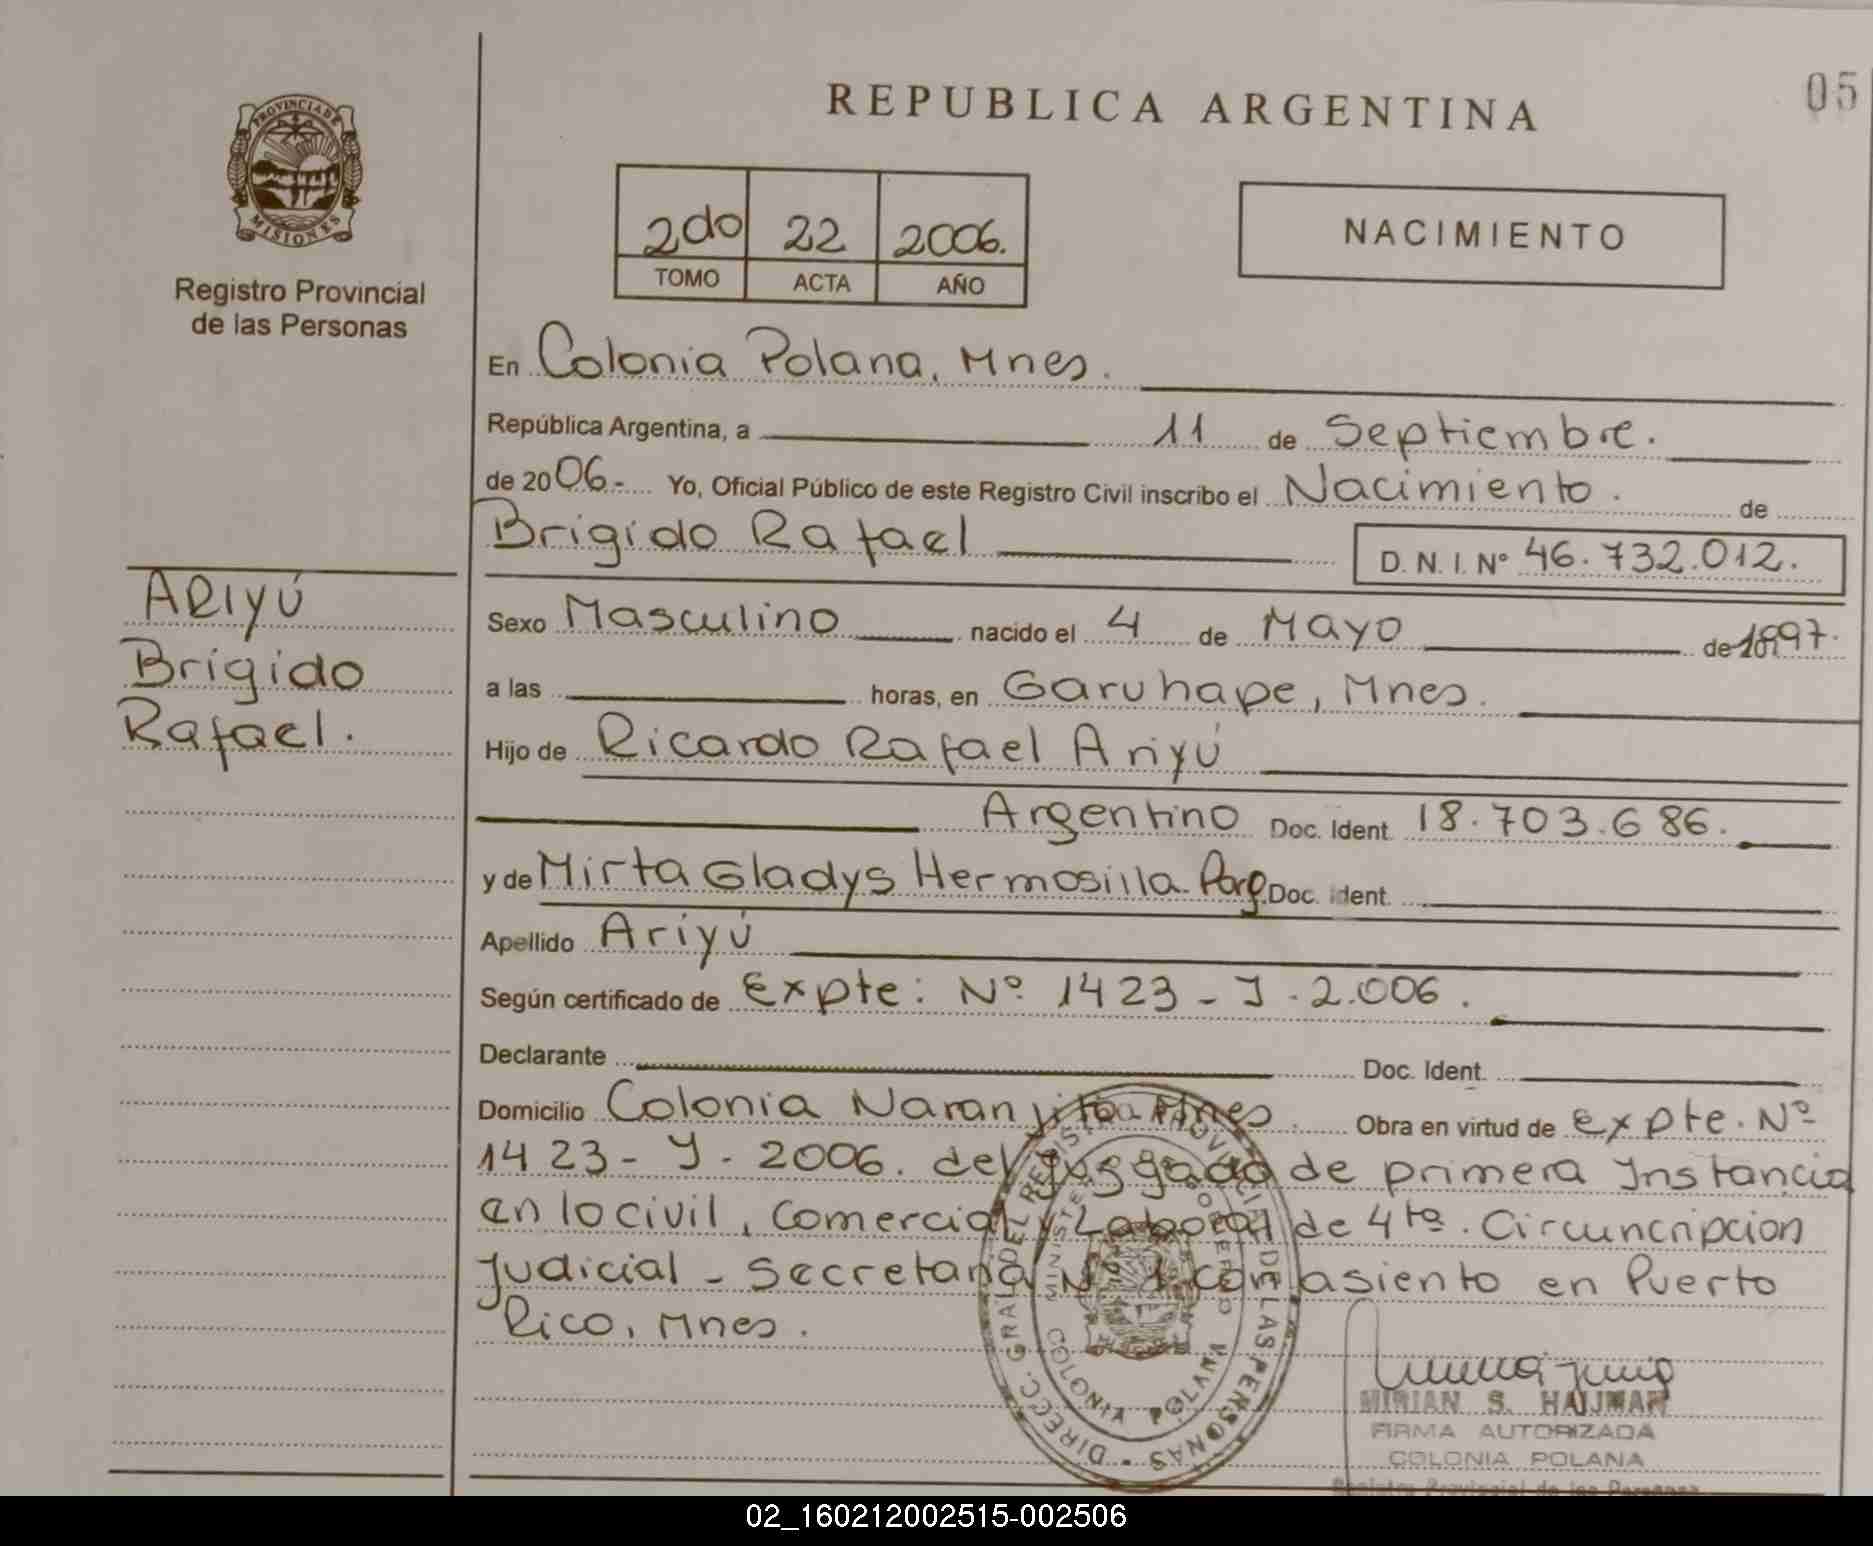 REPUBLICA ARGENTINA
05
PROVINCIA DE
MISIONES
Registro Provincial
de las Personas
2do 22 2006.
TOMO ACTA AÑO
NACIMIENTO
En Colonia Polana, Mnes.
República Argentina, a 11 de Septiembre.
de 2006.- Yo, Oficial Público de este Registro Civil inscribo el Nacimiento. de
Brigido Rafael D. N. I. Nº 46.732.012.
ARIYÚ
Brigido
Rafael.
Sexo Masculino nacido el 4 de Mayo de 1997.
a las horas, en Garuhape, Mnes.
Hijo de Ricardo Rafael Ariyú
Argentino Doc. Ident. 18.703.686.
y de Mirta Gladys Hermosilla. Doc. Ident.
Apellido Ariyú
Según certificado de Expte: Nº 1423 - J - 2.006.
Declarante Doc. Ident.
Domicilio Colonia Naranjito Mnes. Obra en virtud de Expte. Nº
1423 - J - 2006. del Juzgado de primera Instancia
en lo civil, Comercial y Laboral de 4ta. Circuncripcion
Judicial - Secretaria Nº 1 con asiento en Puerto
Rico, Mnes.
DIRECC. GRAL. DEL REGISTRO PROVINCIAL DE LAS PERSONAS
MINISTERIO DE GOBIERNO
COLONIA POLANA
MIRIAN S. HAIJMAN
FIRMA AUTORIZADA
COLONIA POLANA
Registro Provincial de las Personas
02_160212002515-002506